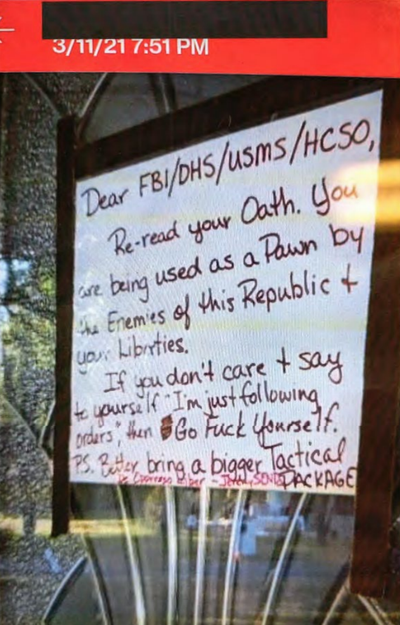 3/11/21 7:51 PM
Dear FBI/DHS/USMS/HCSO,
Re-read your Oath. You
are being used as a Pawn by
the Enemies of this Republic +
your Liberties.
If you don't care + say
to yourself "I'm just following
orders", then Go Fuck Yourself.
PS. Better bring a bigger Tactical
PACKAGE